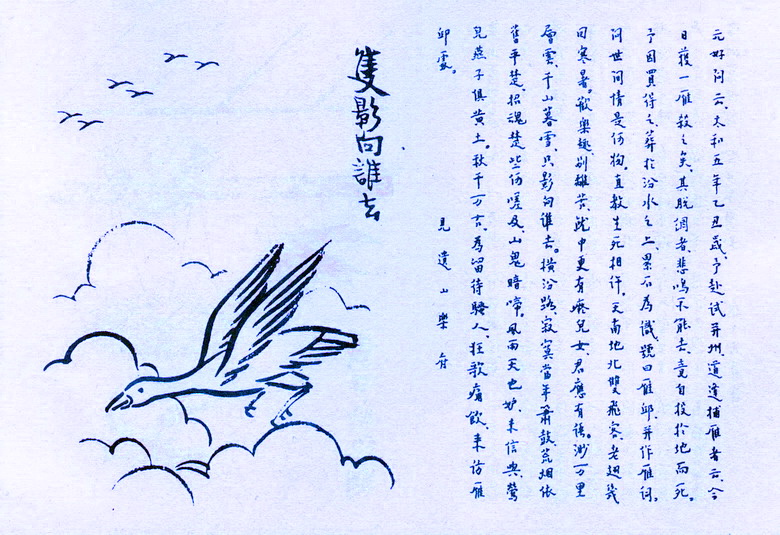 元好问云、太和五年乙丑歲、予赴试并州、道逢捕雁者云、今
日获一雁、殺之矣。其脱網者、悲鳴不能去、竟自投於地而死。
予因買得之、葬於汾水之上、累石為識、號曰雁邱、并作雁词。
问世间情是何物、直教生死相许。天南地北雙飛客、老翅幾
回寒暑。歡樂趣、别離苦、就中更有痴兒女、君應有语。渺万里
層雲、千山暮雪、只影向誰去。横汾路、寂寞當年簫鼓、荒烟依
舊平楚。招魂楚些何嗟及、山鬼暗啼風雨。天也妒、未信與、鶯
兒燕子俱黄土。秋千万古、為留待騷人、狂歌痛飲、来访雁
邱處。
見遺山樂府
隻影向誰去